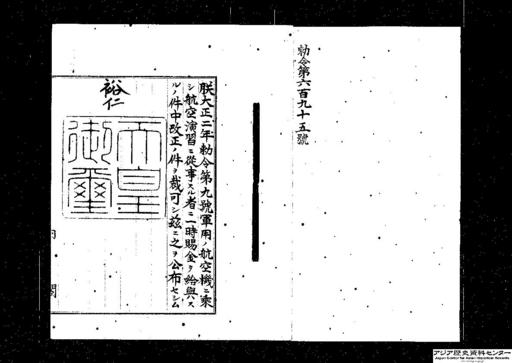 勅令第六百九十五號
朕大正二年勅令第九號軍用ノ航空機ニ乘
シ航空演習ニ從事スル者ニ一時賜金ヲ給與ス
ルノ件中改正ノ件ヲ裁可シ茲ニ之ヲ公布セシム
裕仁
天皇
御璽
内閣
アジア歴史資料センター
Japan Center for Asian Historical Records